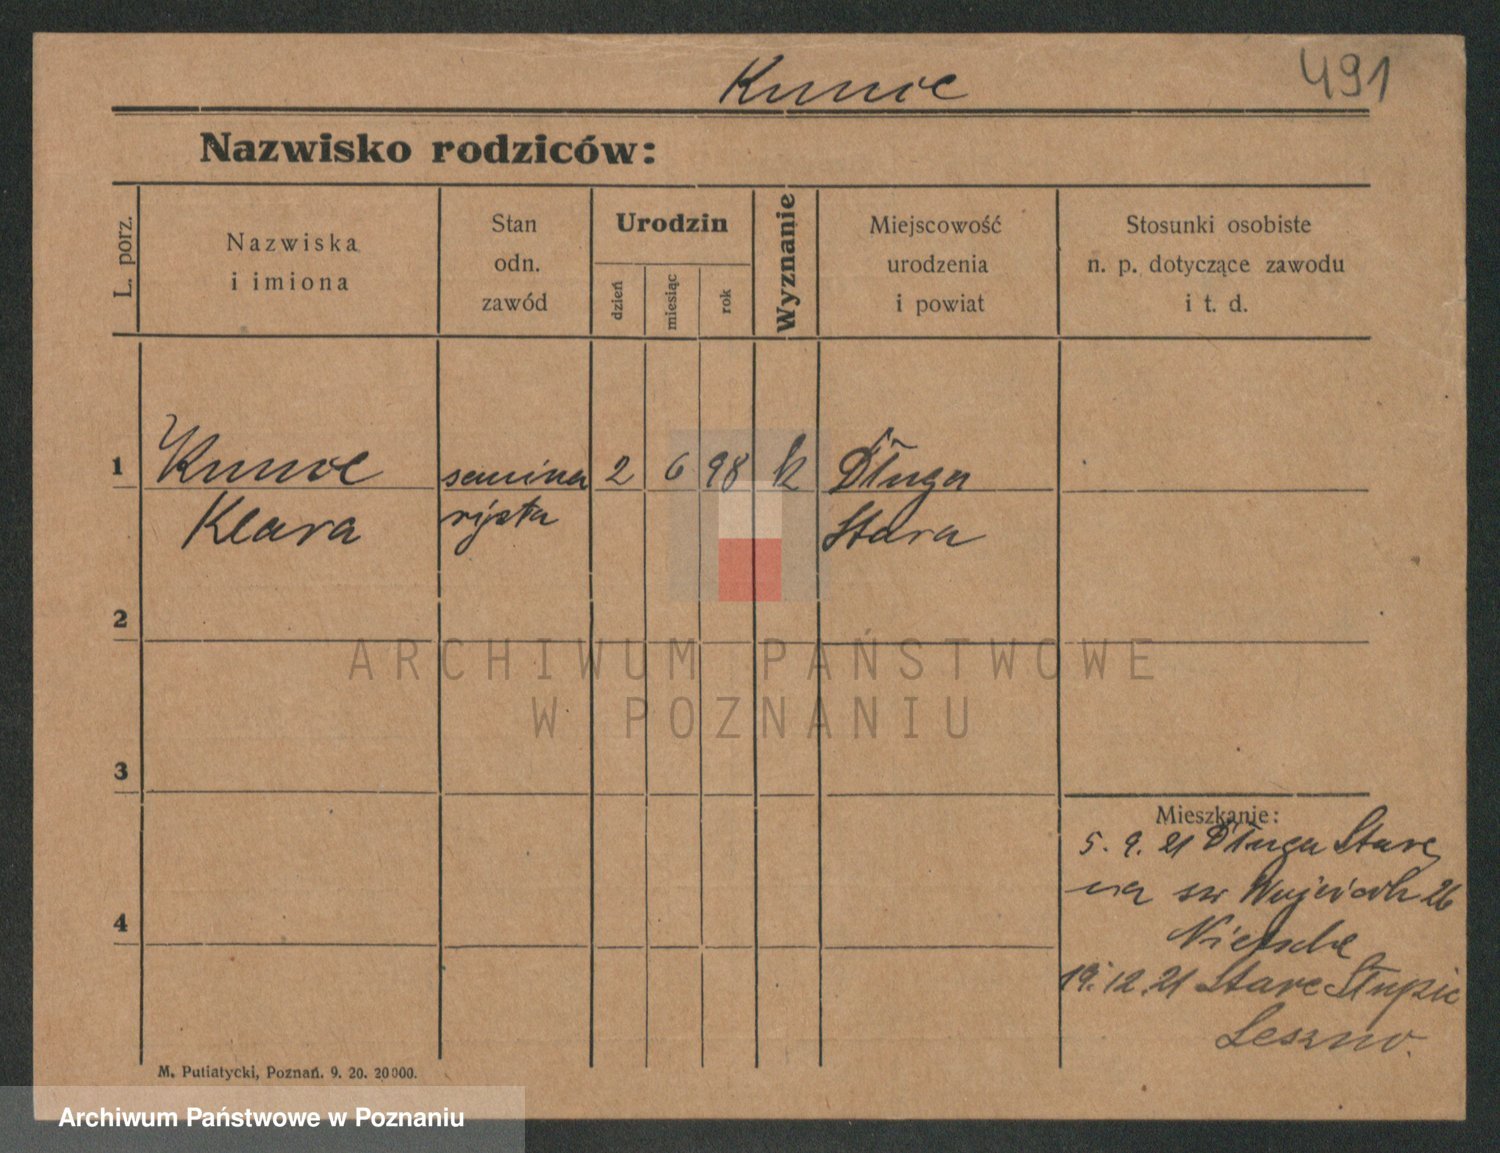 491
Nazwisko rodziców:
L. porz.
Nazwiska
i imiona
Stan
odn.
zawód
Urodzin
dzień
miesiąc
rok
Wyznanie
Miejscowość
urodzenia
i powiat
Stosunki osobiste
n. p. dotyczące zawodu
i t. d.
1
semina 2 6 98 k Długa
Klara rysta Stara
2
3
4
Mieszkanie:
5. 9. 21 Długa Stare
na św Wojciech 26
19. 12. 21 Stare
Leszno.
M. Putiatycki, Poznań. 9. 20. 20000.
ARCHIWUM PAŃSTWOWE
W POZNANIU
Archiwum Państwowe w Poznaniu